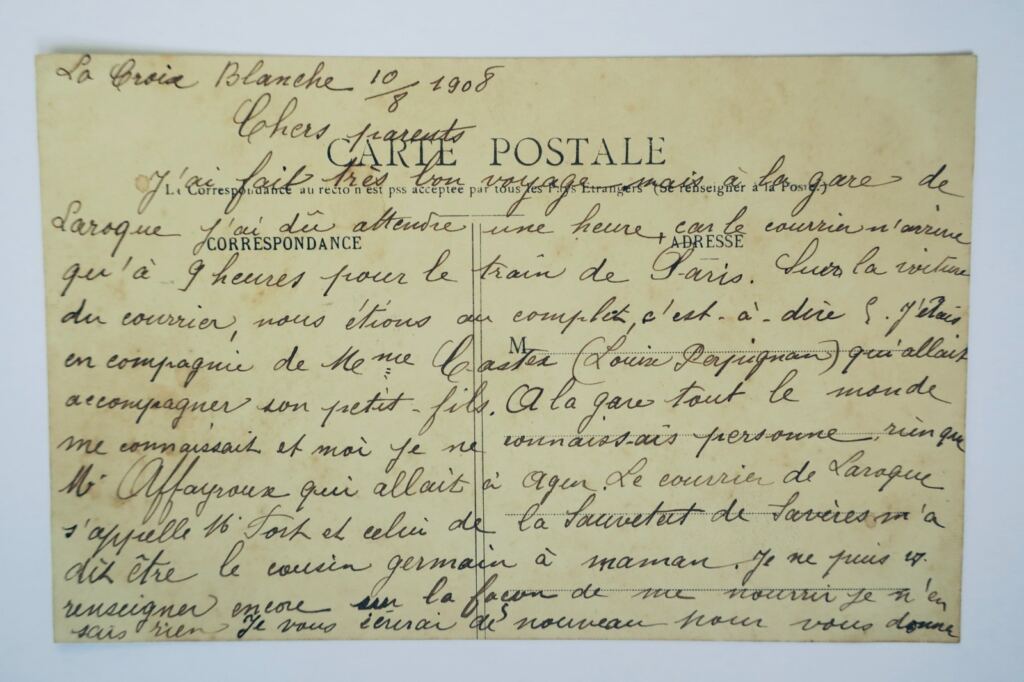 La Croix Blanche 10/8 1908
Chers parents
CARTE POSTALE
J'ai fait très bon voyage mais à la gare de
La Correspondance au recto n'est pas acceptée par tous les Pays Etrangers (Se renseigner à la Poste.)
Laroque j'ai dû attendre une heure, car le courrier n'arrive
CORRESPONDANCE
ADRESSE
qu'à 9 heures pour le train de Paris. Sur la voiture
du courrier, nous étions au complet, c'est-à-dire 5. J'étais
M
en compagnie de Mme Castex (Louise Perpignan) qui allait
accompagner son petit-fils. A la gare tout le monde
me connaissait et moi je ne connaissais personne, rien que
Mr Affayroux qui allait à Agen. Le courrier de Laroque
s'appelle Mr Fort et celui de la Sauvetat de Savères m'a
dit être le cousin germain à maman. Je ne puis v.
renseigner encore sur la façon de me nourrir je n'en
sais rien Je vous écrirai de nouveau pour vous donne